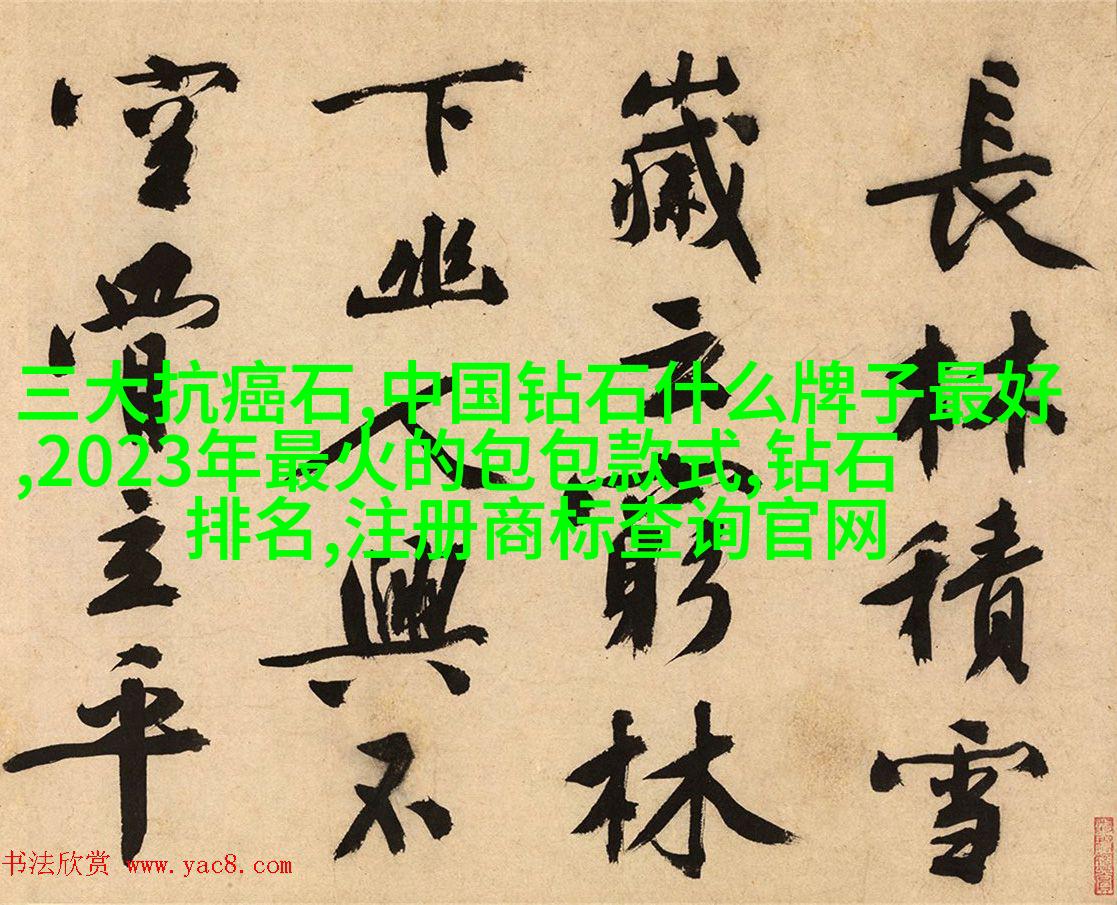 長林積雪
歲云窮林
下幽人興不
空立平
三大抗癌石,中国钻石什么牌子最好
,2023年最火的包包款式,钻石
排名,注册商标查询官网
书法欣赏 www.yac8.com